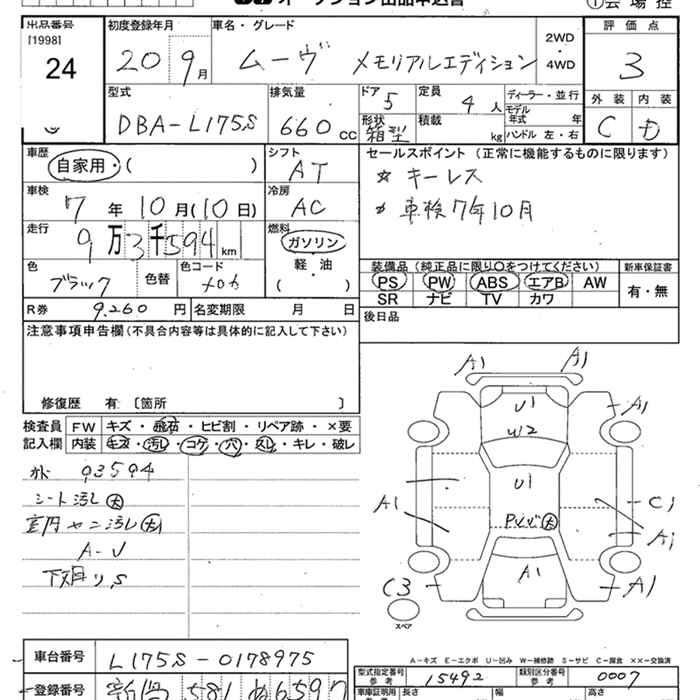 オークション出品申込書
①会場控
出品番号
[1998]
24
初度登録年月
20 9月
車名・グレード
ムーヴ メモリアルエディション
2WD
・
4WD
評価点
3
型式
DBA-L175S
排気量
660 cc
ドア
5
定員
4人
形状
箱型
積載
kg
ディーラー・並行
モデル年式 年
ハンドル 左・右
外装 内装
C D
車歴
自家用・( )
シフト
AT
車検
7年10月(10日)
冷房
AC
走行
9万3千594km
燃料
ガソリン
軽・油
( )
色
ブラック
色替
色コード
R券
9,260円
名変期限 月 日
セールスポイント(正常に機能するものに限ります)
☆キーレス
車検7年10月
装備品(純正品に限り○をつけてください)
新車保証書
PS PW ABS エアB AW
有・無
SR ナビ TV カワ
後日品
注意事項申告欄(不具合内容等は具体的に記入して下さい)
修復歴 有〔箇所 〕
検査員記入欄
FW キズ・飛石・ヒビ割・リペア跡・×要
内装 キズ・汚レ・コゲ・穴・スレ・キレ・破レ
93594
シート汚レ大
室内ヤニ汚レ大
A-U
下廻りS
A1 A1
U1
A1
U2
U1
A1
C1
A1
A1
C3
A1
スペア
A-キズ E-エクボ U-凹み W-補修跡 S-サビ C-腐食 ××-交換済
車台番号
L175S-0178975
型式指定番号 参考
15492
類別区分番号 参考
0007
登録番号
581 あ6597
車庫証明用
長さ
幅
高さ